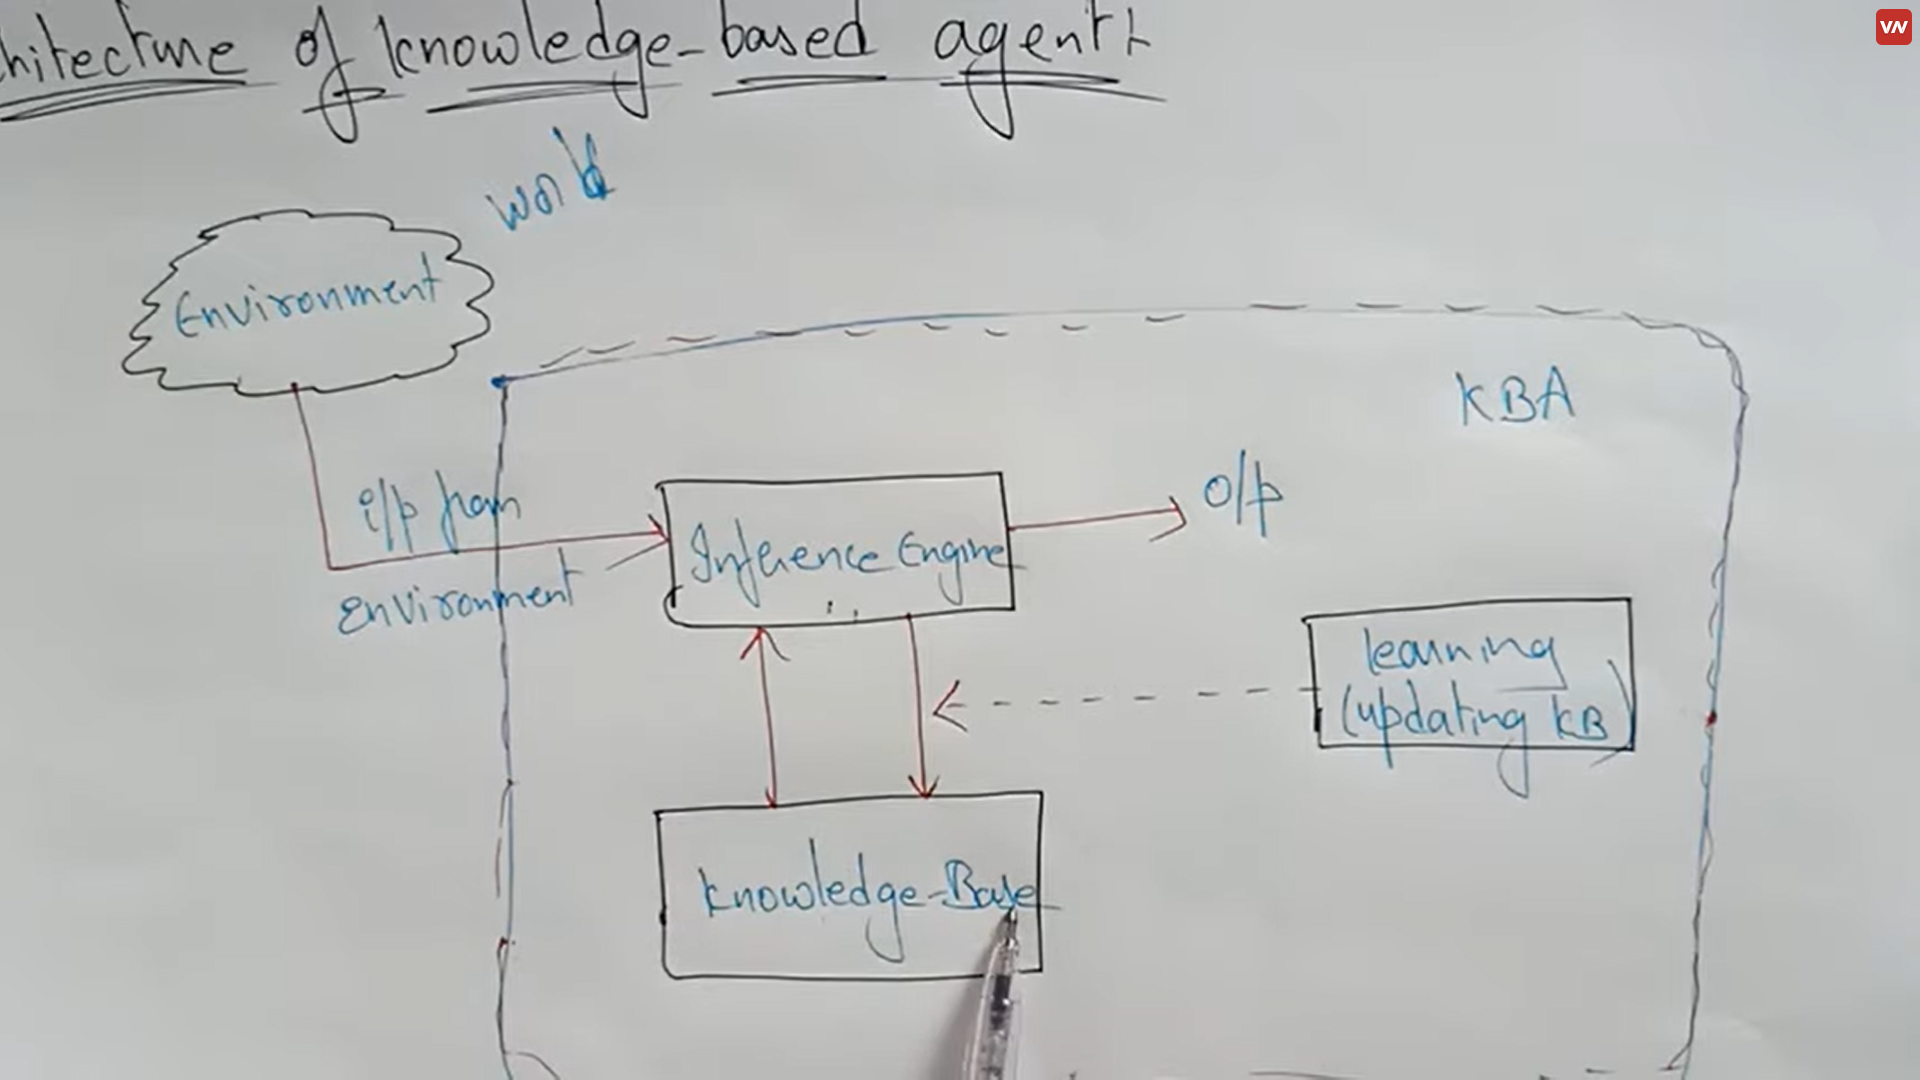 hitecture of knowledge-based agent:
VN
world
Environment
KBA
i/p from
environment
Inference Engine
o/p
learning
(updating KB)
knowledge-Base